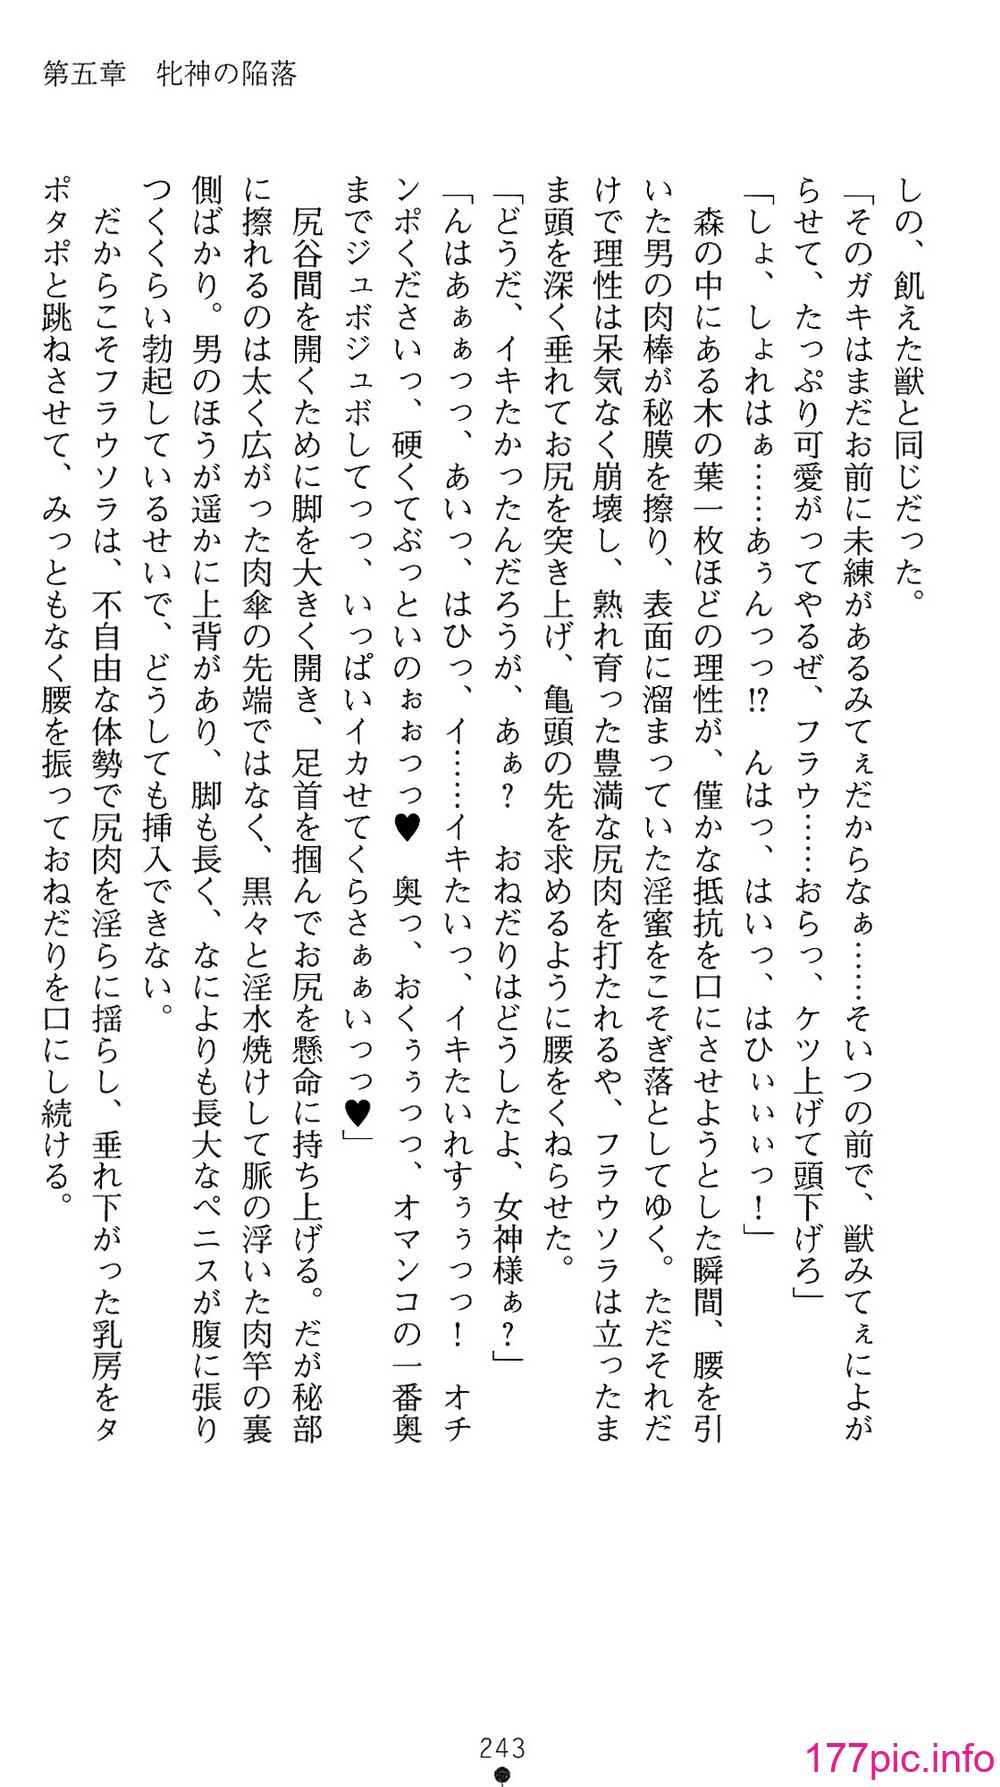 第五章　牝神の陥落
しの、飢えた獣と同じだった。
「そのガキはまだお前に未練があるみてぇだからなぁ……そいつの前で、獣みてぇによが
らせて、たっぷり可愛がってやるぜ、フラウ……おらっ、ケツ上げて頭下げろ」
「しょ、しょれはぁ……あぅんっっ!?　んはっ、はいっ、はひぃぃぃっ！」
　森の中にある木の葉一枚ほどの理性が、僅かな抵抗を口にさせようとした瞬間、腰を引
いた男の肉棒が秘膜を擦り、表面に溜まっていた淫蜜をこそぎ落としてゆく。ただそれだ
けで理性は呆気なく崩壊し、熟れ育った豊満な尻肉を打たれるや、フラウソラは立ったま
ま頭を深く垂れてお尻を突き上げ、亀頭の先を求めるように腰をくねらせた。
「どうだ、イキたかったんだろうが、あぁ？　おねだりはどうしたよ、女神様ぁ？」
「んはあぁぁっっ、あいっ、はひっ、イ……イキたいっ、イキたいれすぅぅっっ！　オチ
ンポくださいっ、硬くてぶっといのぉぉっっ♥　奥っ、おくぅぅっっ、オマンコの一番奥
までジュボジュボしてっっ、いっぱいイカせてくらさぁぁいっっ♥」
　尻谷間を開くために脚を大きく開き、足首を掴んでお尻を懸命に持ち上げる。だが秘部
に擦れるのは太く広がった肉傘の先端ではなく、黒々と淫水焼けして脈の浮いた肉竿の裏
側ばかり。男のほうが遥かに上背があり、脚も長く、なによりも長大なペニスが腹に張り
つくくらい勃起しているせいで、どうしても挿入できない。
　だからこそフラウソラは、不自由な体勢で尻肉を淫らに揺らし、垂れ下がった乳房をタ
ポタポと跳ねさせて、みっともなく腰を振っておねだりを口にし続ける。
243
177pic.info